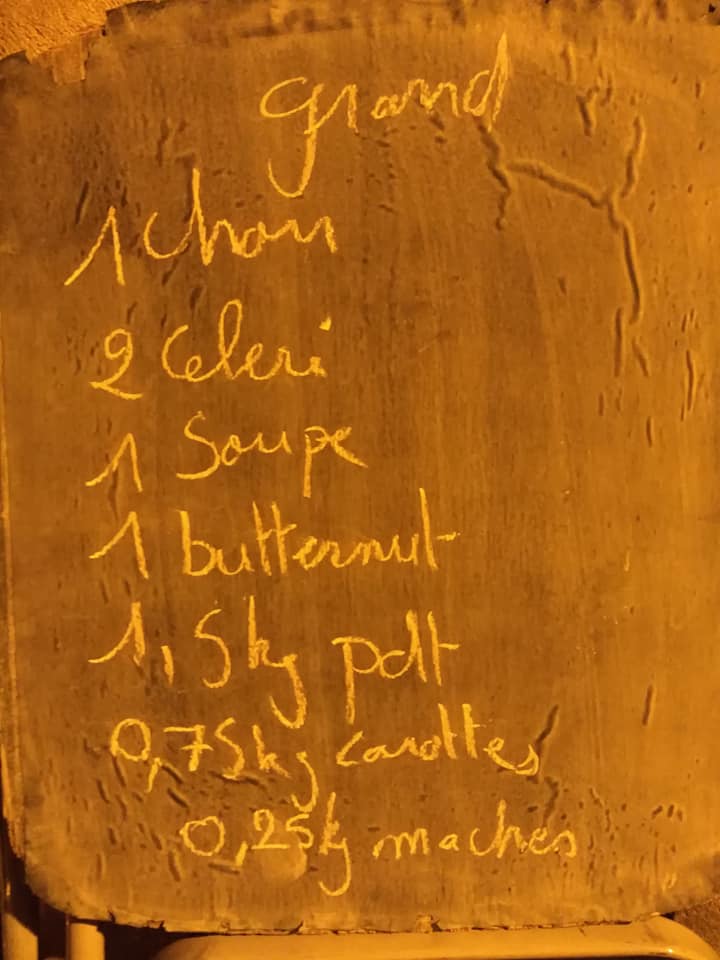 grand
1 chou
2 celeri
1 Soupe
1 butternut
1,5kg pdt
0,75kg carottes
0,25kg maches